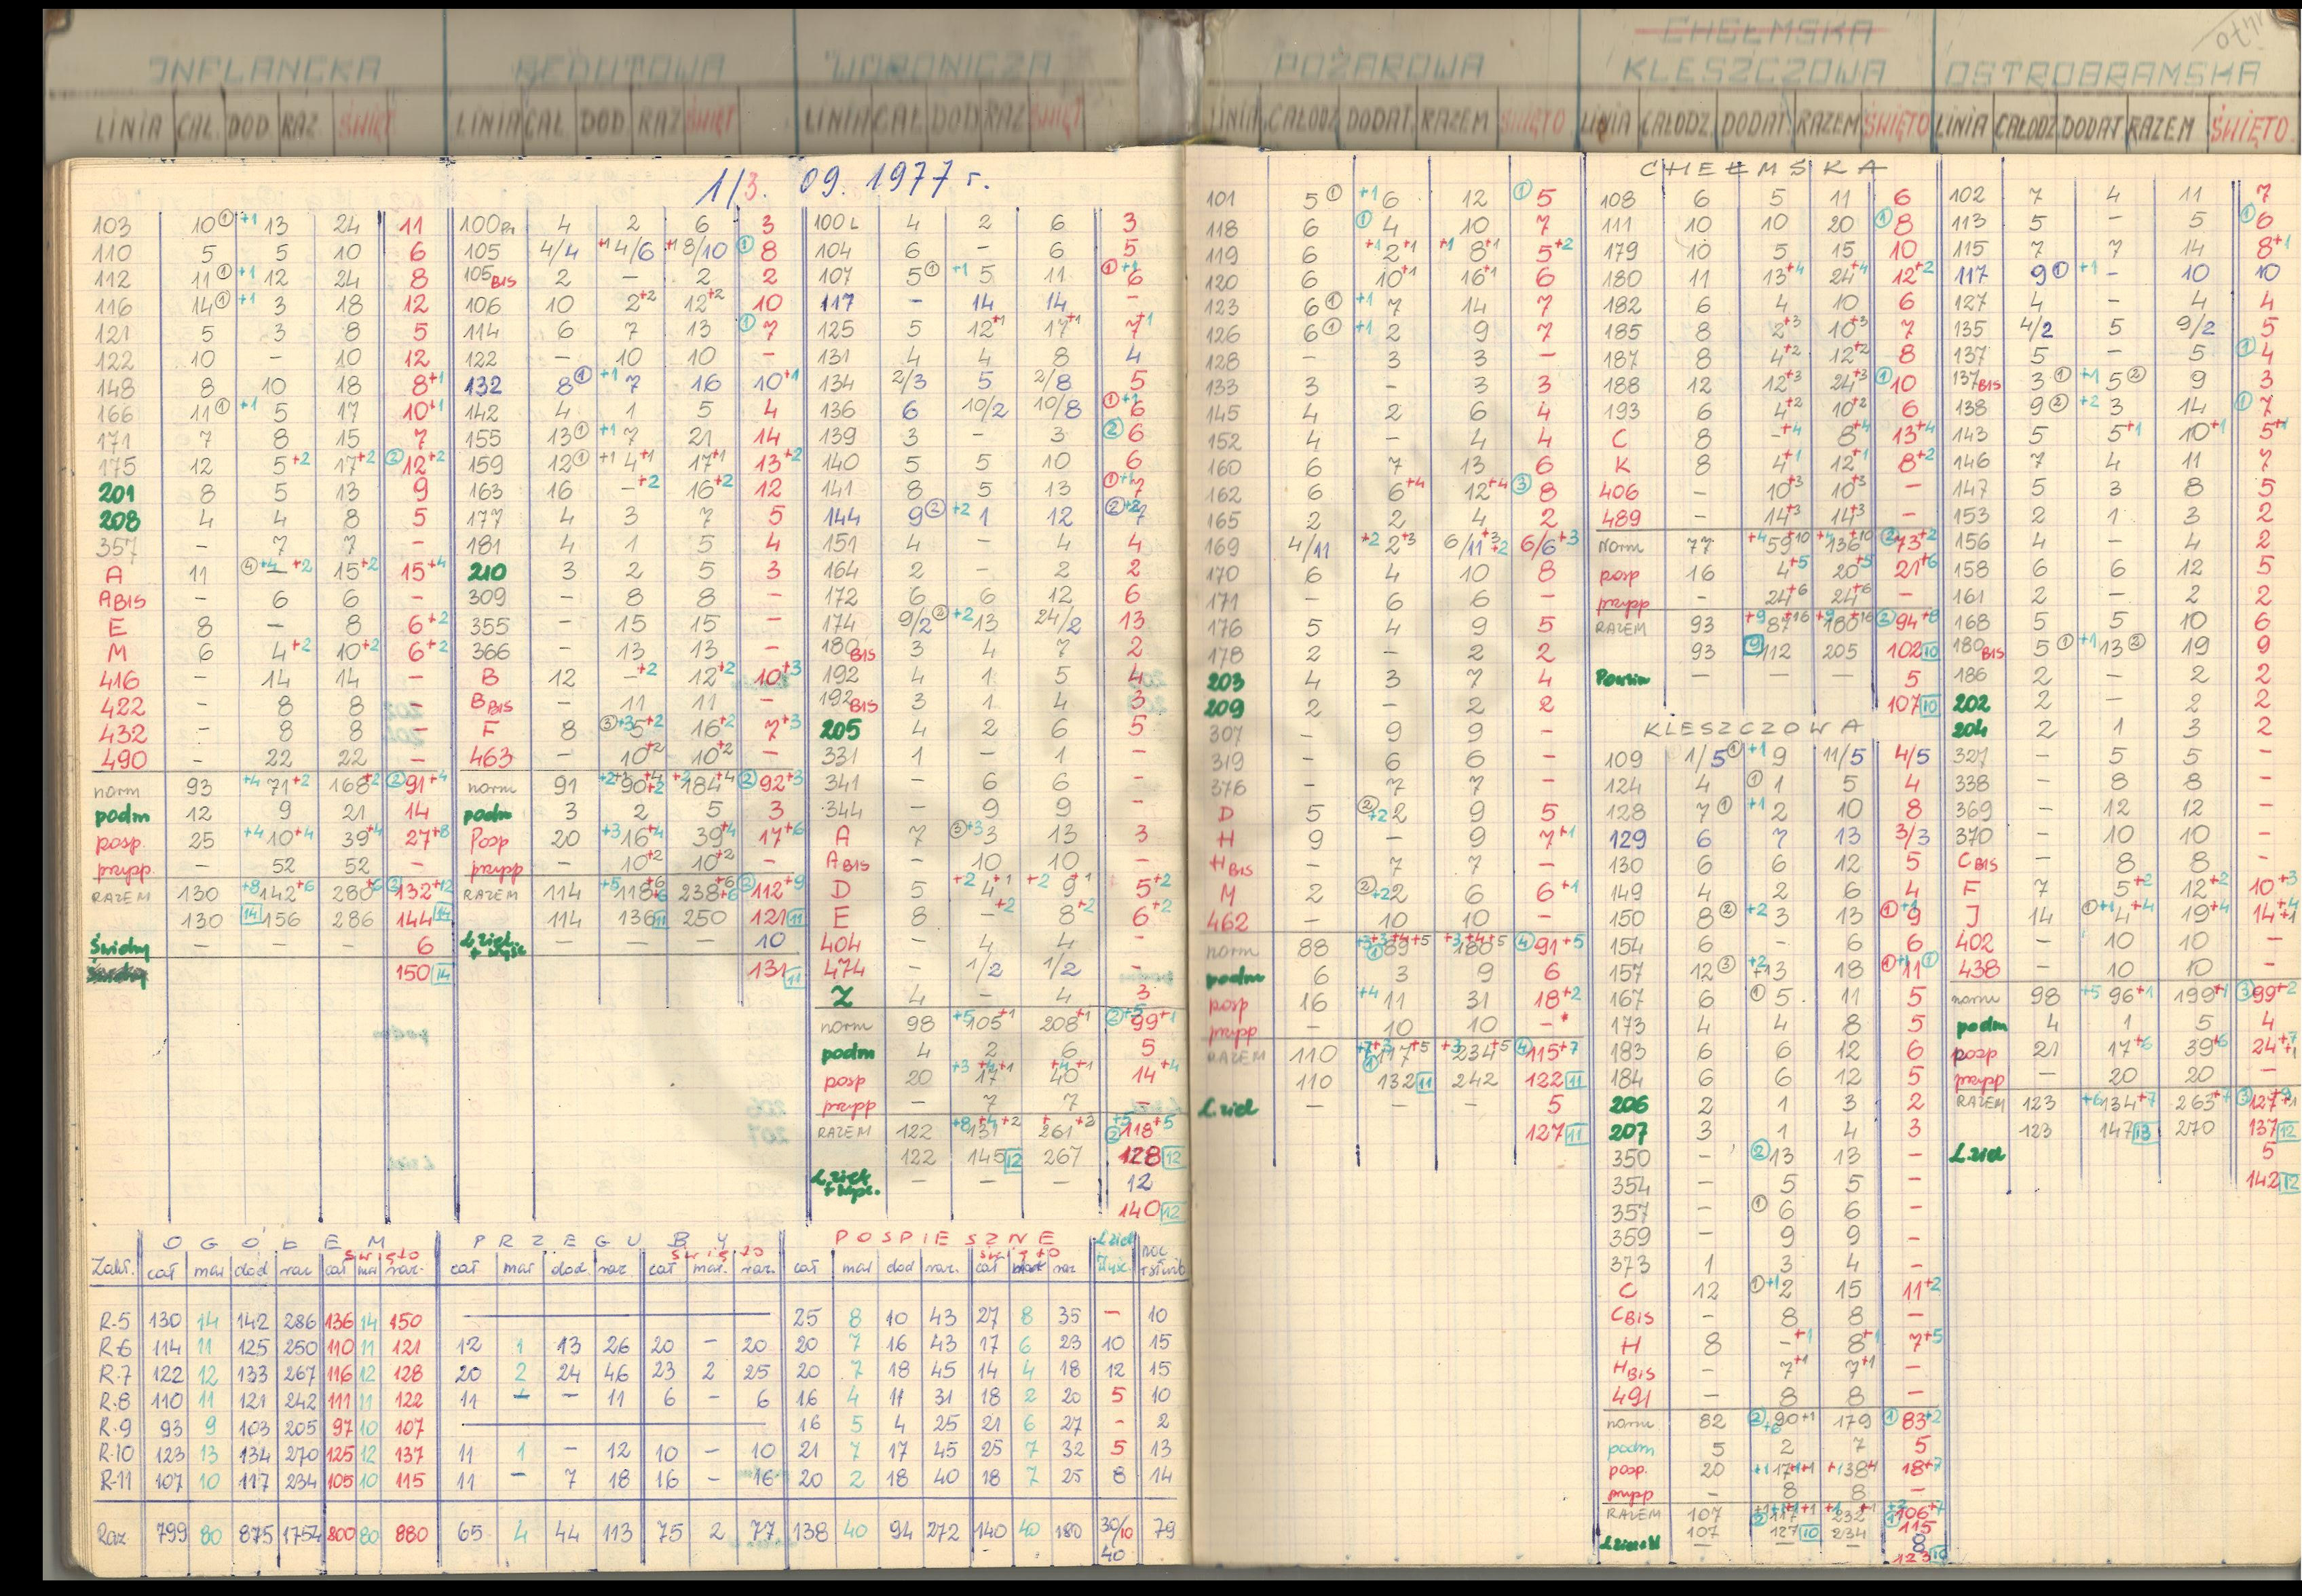 INFLANCKA
LINIA CAŁ. DOD RAZ ŚWIĘT
REDUTOWA
LINIA CAŁ DOD RAZ ŚWIĘT
WORONICZA
LINIA CAŁ DOD RAZ ŚWIĘT
POŻAROWA
LINIA CAŁODZ. DODAT. RAZEM ŚWIĘTO
CHEŁMSKA
KLESZCZOWA
LINIA CAŁODZ. DODAT. RAZEM ŚWIĘTO
OSTROBRAMSKA
LINIA CAŁODZ. DODAT RAZEM ŚWIĘTO
1/3. 09. 1977 r.
103 10① +1 13 24 11
110 5 5 10 6
112 11① +1 12 24 8
116 14① +1 3 18 12
121 5 3 8 5
122 10 - 10 12
148 8 10 18 8+1
166 11① +1 5 17 10+1
171 7 8 15 7
175 12 5+2 17+2 ②12+2
201 8 5 13 9
208 4 4 8 5
357 - 7 7 -
A 11 ④+4 - +2 15+2 15+4
A BIS - 6 6 -
E 8 - 8 6+2
M 6 4+2 10+2 6+2
416 - 14 14 -
422 - 8 8 -
432 - 8 8 -
490 - 22 22 -
norm 93 +4 71+2 168+2 ②91+4
podm 12 9 21 14
posp 25 +4 10+4 39+4 27+8
przypp. - 52 52 -
RAZEM 130 +8 142+6 280+6 ②132+12
130 14 156 286 144 14
- - - 6
150 14
100Pn 4 2 6 3
105 4/4 +1 4/6 +1 8/10 ①8
105 BIS 2 - 2 2
106 10 2+2 12+2 10
114 6 7 13 ①7
122 - 10 10 -
132 8① +1 7 16 10+1
142 4 1 5 4
155 13① +1 7 21 14
159 12① +1 4+1 17+1 13+2
163 16 - +2 16+2 12
177 4 3 7 5
181 4 1 5 4
210 3 2 5 3
309 - 8 8 -
355 - 15 15 -
366 - 13 13 -
B 12 - +2 12+2 10+3
B BIS - 11 11 -
F 8 ③+3 5+2 16+2 7+3
463 - 10+2 10+2 -
norm 91 90 184+4 ②92+3
podm 3 2 5 3
Posp 20 +3 16+4 39+4 17+6
przypp - 10+2 10+2 -
RAZEM 114 +5 118 238 ②112+9
114 136 11 250 121 11
- - - 10
131 11
100 L 4 2 6 3
104 6 - 6 5
107 5① +1 5 11 ①+1 6
117 - 14 14 -
125 5 12+1 17+1 7+1
131 4 4 8 4
134 2/3 5 2/8 5
136 6 10/2 10/8 ①+1 6
139 3 - 3 ②6
140 5 5 10 6
141 8 5 13 ①+1 7
144 9② +2 1 12 ②+2 7
151 4 - 4 4
164 2 - 2 2
172 6 6 12 6
174 9/2② +2 13 24/2 13
180 BIS 3 4 7 2
192 4 1 5 4
192 BIS 3 1 4 3
205 4 2 6 5
331 1 - 1 -
341 - 6 6 -
344 - 9 9 -
A 7 ③+3 3 13 3
A BIS - 10 10 -
D 5 +2 4+1 +2 9+1 5+2
E 8 - +2 8+2 6+2
404 - 4 4 -
474 - 1/2 1/2 -
Z 4 - 4 3
norm 98 +5 105+1 208+1 99+1
podm 4 2 6 5
posp 20 17 40 14+4
przypp - 7 7 -
RAZEM 122 131 261 118+5
122 145 12 267 128 12
- - - 12
140 12
101 5① +1 6 12 ①5
118 6 ①4 10 7
119 6 +1 2+1 +1 8+1 5+2
120 6 10+1 16+1 6
123 6① +1 7 14 7
126 6① +1 2 9 7
128 - 3 3 -
133 3 - 3 3
145 4 2 6 4
152 4 - 4 4
160 6 7 13 6
162 6 6+4 12+4 ③8
165 2 2 4 2
169 4/11 +2 2+3 6/11 6/6+3
170 6 4 10 8
171 - 6 6 -
176 5 4 9 5
178 2 - 2 2
203 4 3 7 4
209 2 - 2 2
307 - 9 9 -
319 - 6 6 -
376 - 7 7 -
D 5 ②+2 2 9 5
H 9 - 9 7+1
H BIS - 7 7 -
M 2 ②+2 2 6 6+1
462 - 10 10 -
norm 88 89 180 ④91+5
podm 6 3 9 6
posp 16 +4 11 31 18+2
przypp - 10 10 -
RAZEM 110 117+5 234+5 ④115+7
110 132 11 242 122 11
L. ziel - - - 5
127 11
CHEŁMSKA
108 6 5 11 6
111 10 10 20 ①8
179 10 5 15 10
180 11 13+4 24+4 12+2
182 6 4 10 6
185 8 2+3 10+3 7
187 8 4+2 12+2 8
188 12 12+3 24+3 ①10
193 6 4+2 10+2 6
C 8 - +4 8+4 13+4
K 8 4+1 12+1 8+2
406 - 10+3 10+3 -
489 - 14+3 14+3 -
Norm 77 +4 59+10 +4 136+10 ②73+2
posp 16 4+5 20+5 21+6
przypp - 24+6 24+6 -
RAZEM 93 +9 87+16 +9 180+16 ②94+8
93 9 112 205 102 10
- - - 5
107 10
KLESZCZOWA
109 1/5① +1 9 11/5 4/5
124 4 ①1 5 4
128 7① +1 2 10 8
129 6 7 13 3/3
130 6 6 12 5
149 4 2 6 4
150 8② +2 3 13 ①+1 9
154 6 - 6 6
157 12③ +2 13 18 11
167 6 ①5 11 5
173 4 4 8 5
183 6 6 12 6
184 6 6 12 5
206 2 1 3 2
207 3 1 4 3
350 - ②13 13 -
354 - 5 5 -
357 - ①6 6 -
359 - 9 9 -
373 1 3 4 -
C 12 ①+1 2 15 11+2
C BIS - 8 8 -
H 8 - +1 8+1 7+5
H BIS - 7+1 7+1 -
491 - 8 8 -
norm 82 90+1 179 ①83+2
podm 5 2 7 5
posp. 20 +1 17 38 18+7
przypp - 8 8 -
RAZEM 107 117 232 106+7
107 127 10 234 115
- - - 8
123 10
102 7 4 11 7
113 5 - 5 ①6
115 7 7 14 8+1
117 9① +1 - 10 10
127 4 - 4 4
135 4/2 5 9/2 5
137 5 - 5 ①4
137 BIS 3① +1 5② 9 3
138 9② +2 3 14 ①7
143 5 5+1 10+1 5+1
146 7 4 11 7
147 5 3 8 5
153 2 1 3 2
156 4 - 4 2
158 6 6 12 5
161 2 - 2 2
168 5 5 10 6
180 BIS 5① +1 13② 19 9
186 2 - 2 2
202 2 - 2 2
204 2 1 3 2
327 - 5 5 -
338 - 8 8 -
369 - 12 12 -
370 - 10 10 -
C BIS - 8 8 -
F 7 5+2 12+2 10+3
J 14 ①+1 4+4 19+4 14
402 - 10 10 -
438 - 10 10 -
norm 98 +5 96+1 199+1 ③99+2
podm 4 1 5 4
posp 21 17+6 39+6 24
przypp - 20 20 -
RAZEM 123 +6 134+7 263+7 ③127
123 147 13 270 137 12
L. ziel 5
142 12
OGÓŁEM PRZEGUBY POSPIESZNE
święto święto święto
Zakł. cał mar dod raz cał mar raz. cał mar dod. raz. cał. mar. raz. cał mar dod raz. cał raz
R-5 130 14 142 286 136 14 150 25 8 10 43 27 8 35 - 10
R-6 114 11 125 250 110 11 121 12 1 13 26 20 - 20 20 7 16 43 17 6 23 10 15
R-7 122 12 133 267 116 12 128 20 2 24 46 23 2 25 20 7 18 45 14 4 18 12 15
R-8 110 11 121 242 111 11 122 11 - - 11 6 - 6 16 4 11 31 18 2 20 5 10
R-9 93 9 103 205 97 10 107 16 5 4 25 21 6 27 - 2
R-10 123 13 134 270 125 12 137 11 1 - 12 10 - 10 21 7 17 45 25 7 32 5 13
R-11 107 10 117 234 105 10 115 11 - 7 18 16 - 16 20 2 18 40 18 7 25 8 14
Raz 799 80 875 1754 800 80 880 65 4 44 113 75 2 77 138 40 94 272 140 40 180 30/10 79
40